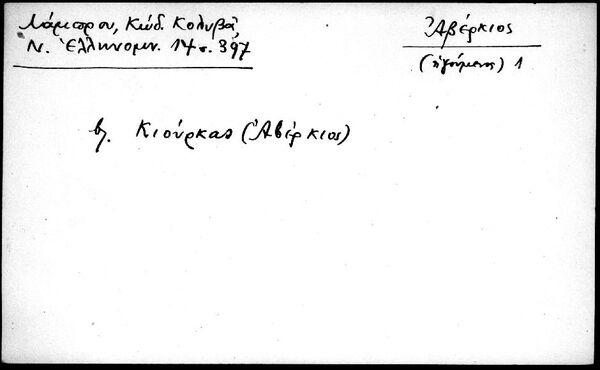 Λάμπρου, Κώδ. Κολυβᾶ,
Ν. Ἑλληνομν. 14 σ. 397
Ἀβέρκιος
(ἡγούμενος) 1
βλ. Κιούρκας (Ἀβέρκιος)